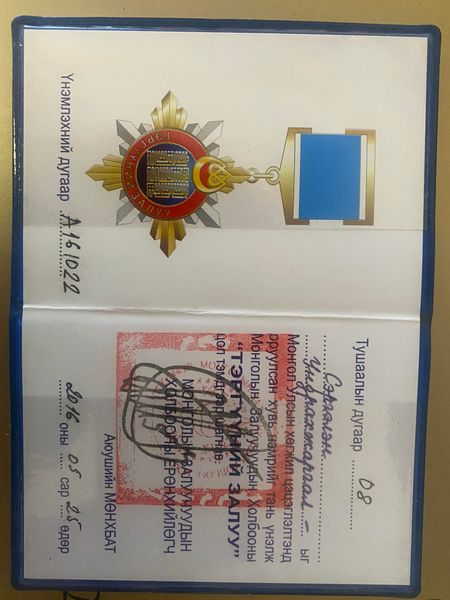 ТЭРГҮҮНИЙ ЗАЛУУ
Үнэмлэхний дугаар А161022
Тушаалын дугаар 08
Сэргэлэн
Ундрахжаргал - ыг
Монгол Улсын хөгжил цэцэглэлтэнд
оруулсан хувь нэмрийг тань үнэлж
Монголын Залуучуудын Холбооны
"ТЭРГҮҮНИЙ ЗАЛУУ"
цол тэмдгээр шагнав.
МОНГОЛЫН ЗАЛУУЧУУДЫН
ХОЛБООНЫ ЕРӨНХИЙЛӨГЧ
Аюушийн МӨНХБАТ
2016 оны 05 сар 25 өдөр